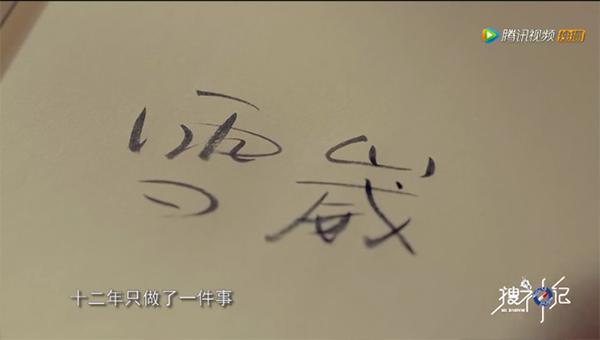 腾讯视频 独播
雪崴
十二年只做了一件事
搜神记